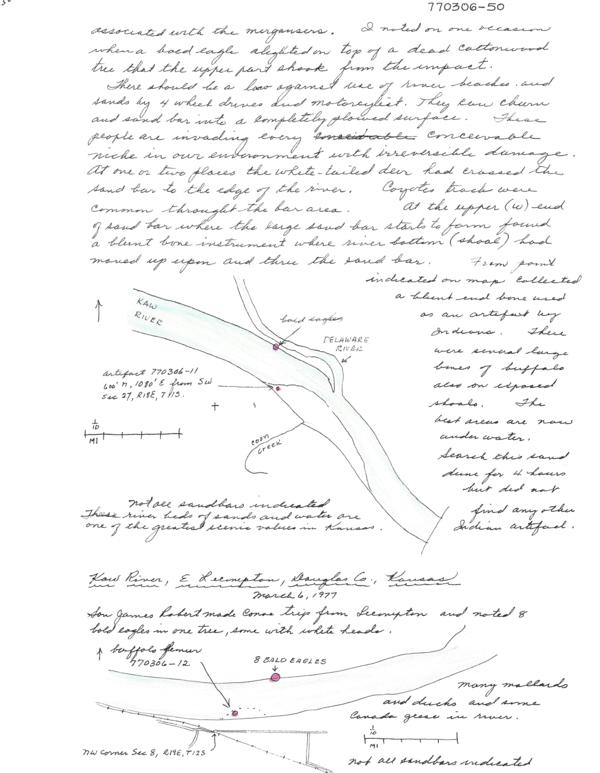 770306-50
associated with the mergansers. I noted on one occasion
when a bald eagle alighted on top of a dead cottonwood
tree that the upper part shook from the impact.
There should be a law against use of river beaches and
sands by 4 wheel drives and motorcyclist. They can churn
and sand bar into a completely plowed surface. These
people are invading every conceivable
niche in our environment with irreversible damage.
At one or two places the white-tailed deer had crossed the
sand bar to the edge of the river. Coyotes track were
common throught the bar area. At the upper (W) end
of sand bar where the large sand bar starts to form found
a blunt bone instrument where river bottom (shoal) had
moved up upon and thru the sand bar. From point
indicated on map collected
a blunt end bone used
as an artifact by
Indians. There
were several large
bones of buffalo
also on exposed
shoals. The
best areas are now
under water.
Search this sand
dune for 4 hours
but did not
find any other
Indian artifact.
KAW
RIVER
bald eagles
DELAWARE
RIVER
artifact 770306-11
600' N, 1080' E from SW
Sec 27, R18E, T11S.
1/10
MI
COON
CREEK
not all sandbars indicated
These river beds of sands and water are
one of the greatest scenic values in Kansas.
Kaw River, E Lecompton, Douglas Co., Kansas
March 6, 1977
Son James Robert made canoe trip from Lecompton and noted 8
bald eagles in one tree, some with white heads.
buffalo femur
770306-12
8 BALD EAGLES
many mallards
and ducks and some
Canada geese in river.
1/10
MI
NW corner Sec 8, R19E, T12S
not all sandbars indicated